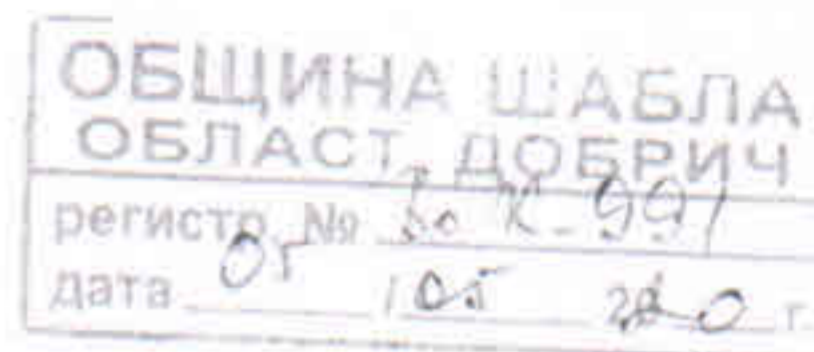 ОБЩИНА ШАБЛА
ОБЛАСТ ДОБРИЧ
регистр № К-991
дата 05 г.